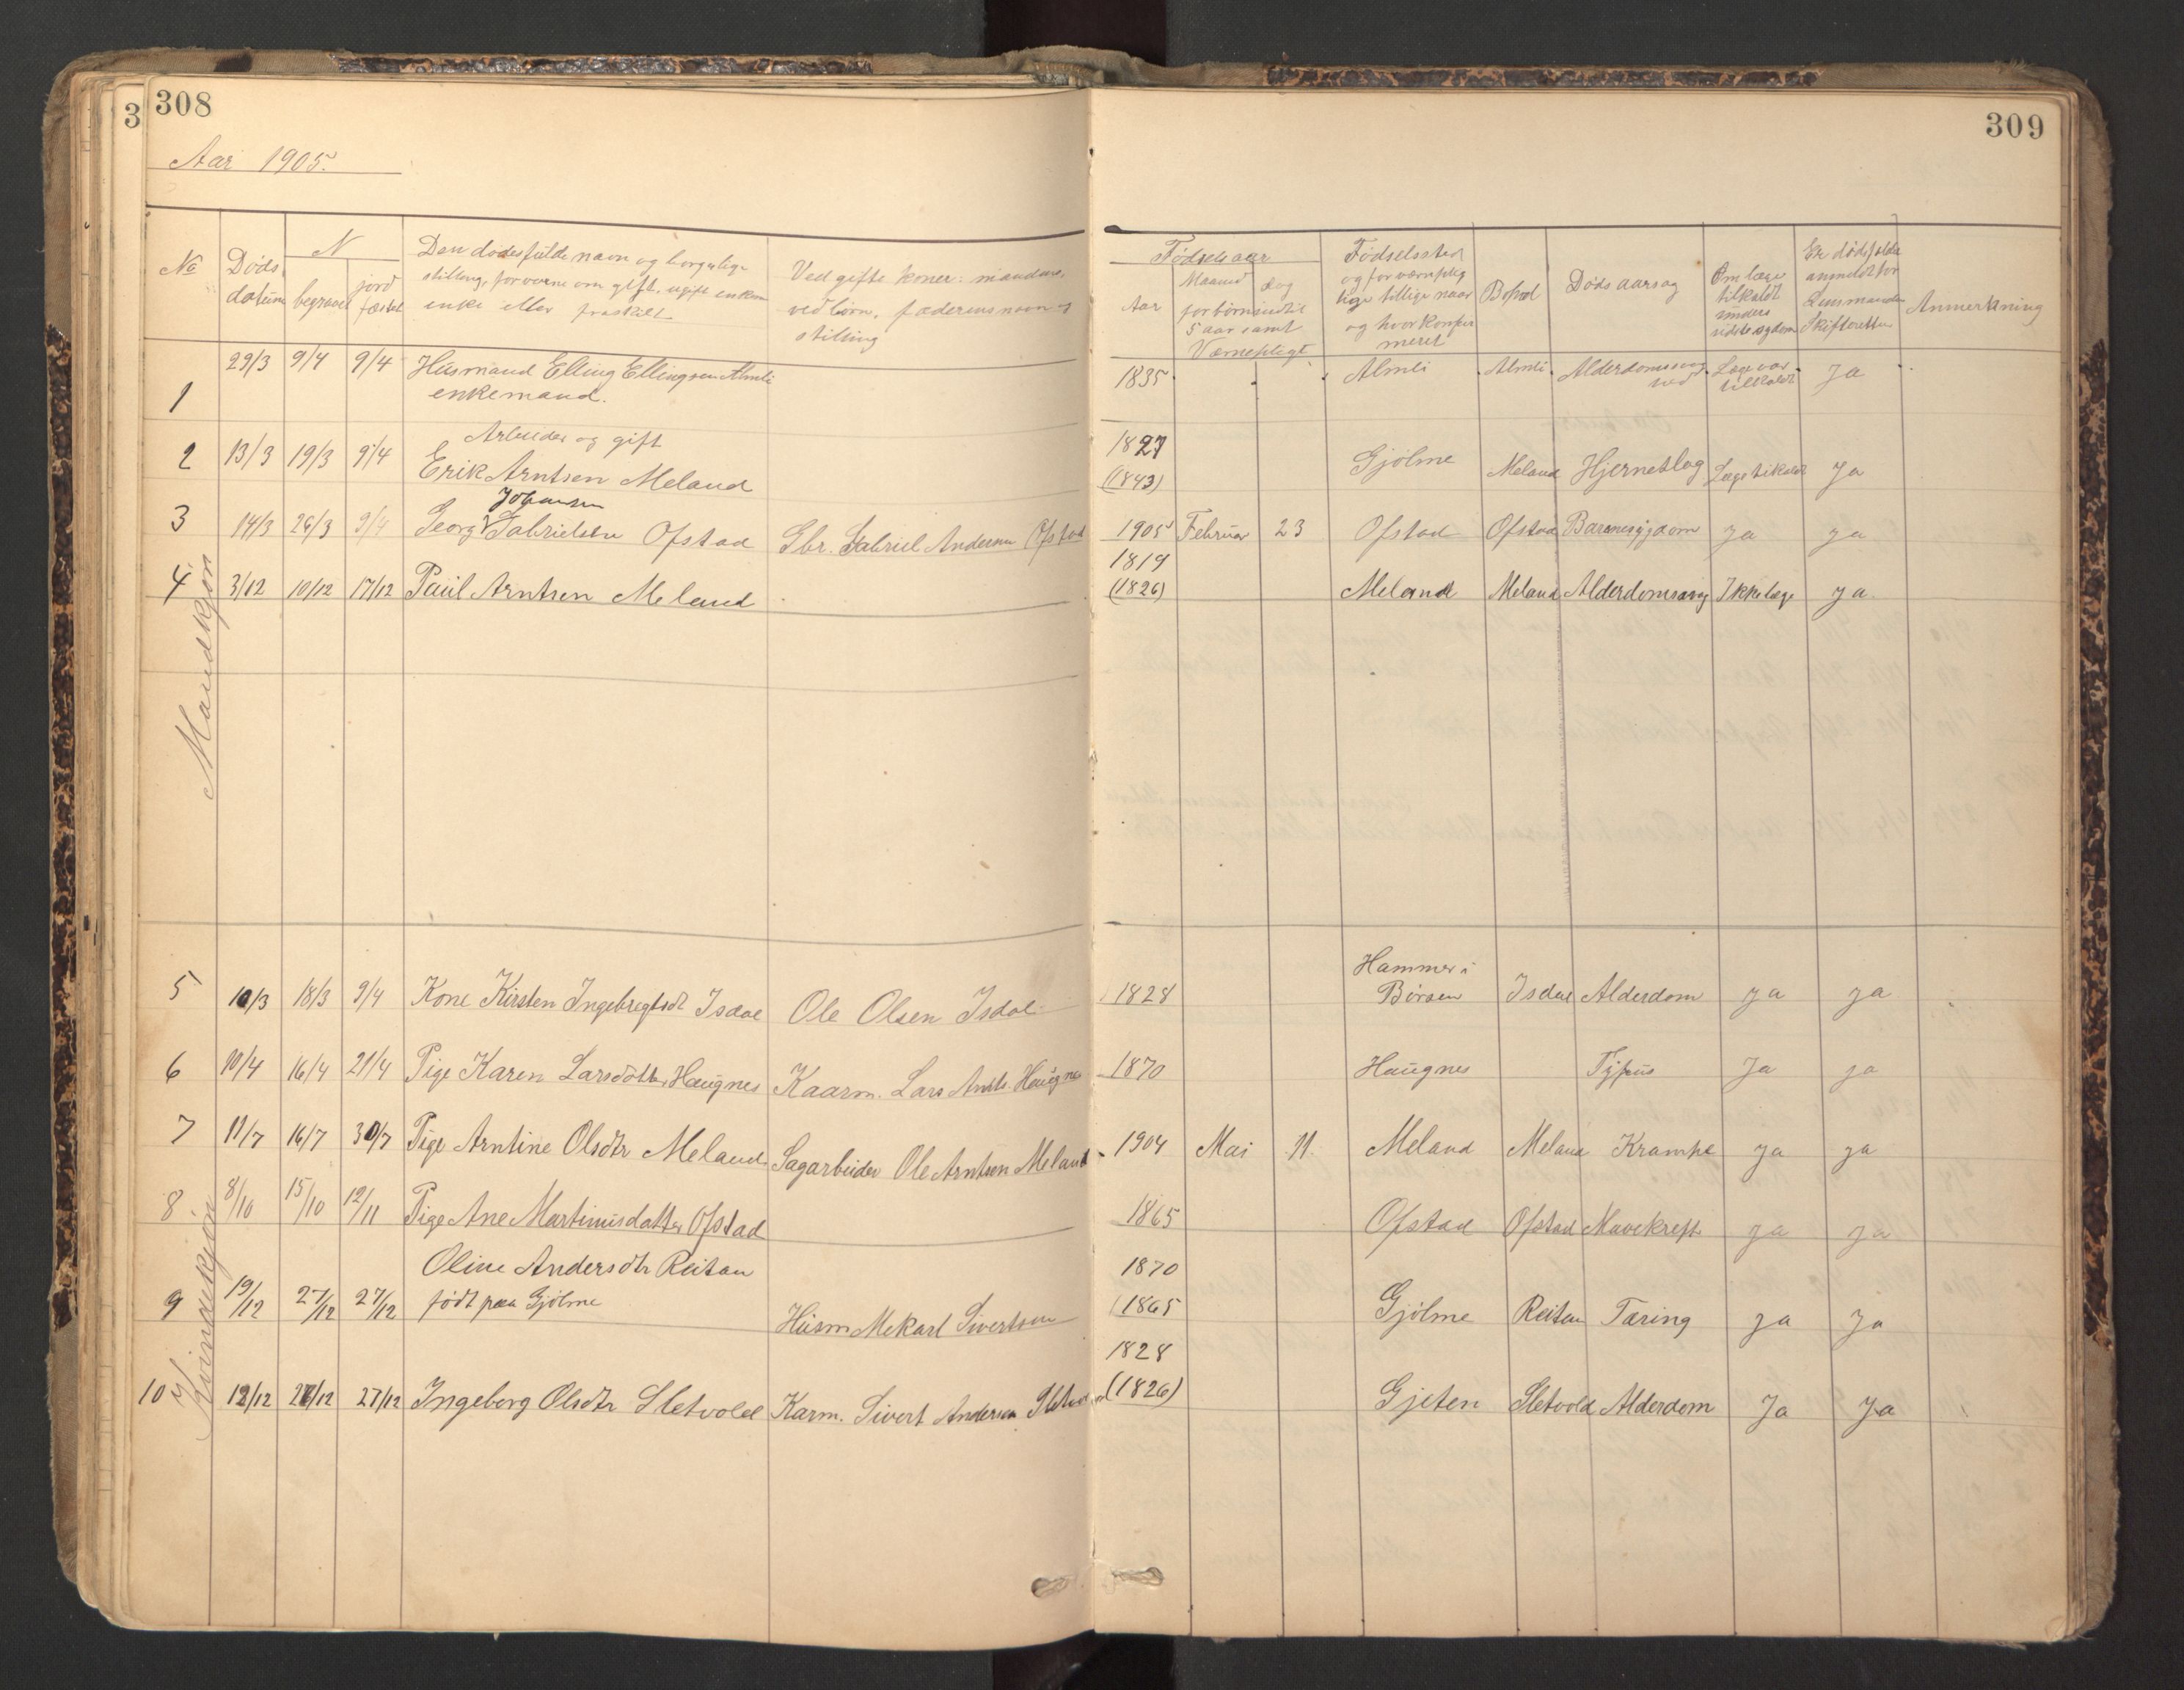 3 308
309
Aar 1905.
No
Døds datum
N
begravet
jord fæstet
Den dødes fulde navn og borgerlige
stilling, for voxne om gift, ugift enkem
enke eller fraskilt
Ved gifte koner: mandens,
ved børn, faderens navn og
stilling
Fødselsaar
Aar
Maaned
dag
for børn indtil
5 aar samt
Værnepligt.
Fødselssted
og for værneplig
tige tillige naar
og hvor konfir
meret
Bosted
Døds aarsag
Om læge
tilkaldt
under
sidste sygdom
Er dødsfaldet
anmeldt for
Lensmanden
Skifteretten
Anmerkning
Mandkjøn
1 29/3 9/4 9/4 Husmand Elling Ellingsen Almli 1835 Almli Almli Alderdomssvag Læge var
enkemand. hed tilkaldt Ja
Arbeider og gift 1827
2 13/3 19/3 9/4 Erik Arntsen Meland (1843) Gjølme Meland Hjerneslag Læge tilkaldt Ja
Johansen
3 14/3 26/3 9/4 Georg V Gabrielsen Ofstad Gbr. Gabriel Andersen Ofstad 1905 Februar 23 Ofstad Ofstad Barnesygdom ja ja
1819
4 3/12 10/12 17/12 Paul Arntsen Meland (1826) Meland Meland Alderdomssvag Ikke læge ja
Kvindekjøn
Hammer i
5 10/3 18/3 9/4 Kone Kirsten Ingebregtsdt Isdal Ole Olsen Isdal 1828 Børsen Isdal Alderdom ja ja
6 10/4 16/4 21/4 Pige Karen Larsdotter Haugnes Kaarm. Lars Arnts. Haugnes 1870 Haugnes Tyfus Ja ja
7 11/7 16/7 30/7 Pige Arntine Olsdtr Meland Sagarbeider Ole Arntsen Meland 1904 Mai 11. Meland Meland Krampe ja ja
8 8/10 15/10 12/11 Pige Ane Martinusdatter Ofstad 1865 Ofstad Ofstad Mavekreft ja ja
Oline Andersdtr Reitan 1870
9 19/12 27/12 27/12 født paa Gjølme Husm Mekarl Sivertsen (1865 Gjølme Reitan Tæring ja ja
1828
10 12/12 27/12 27/12 Ingeborg Olsdtr Sletvold Karm. Sivert Andersen Sletvold (1826) Gjeten Sletvold Alderdom Ja Ja